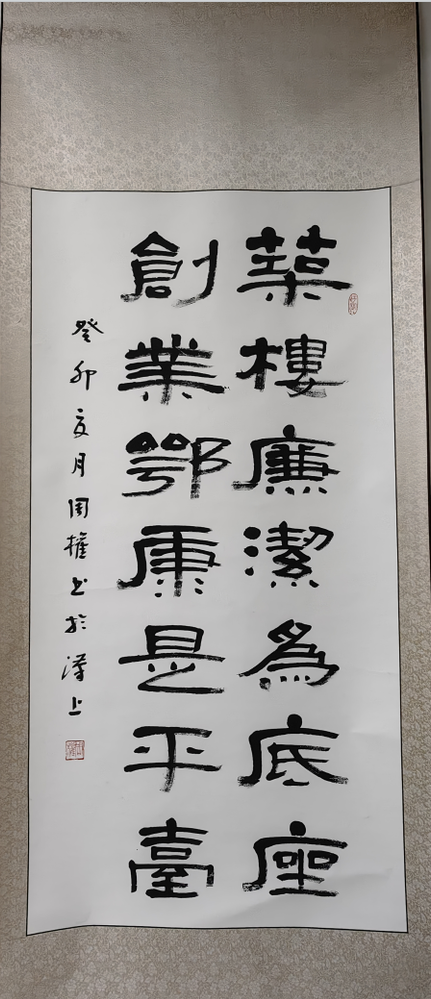 築樓廉潔為底座
創業鄂康是平臺
癸卯亥月周權书於漢上